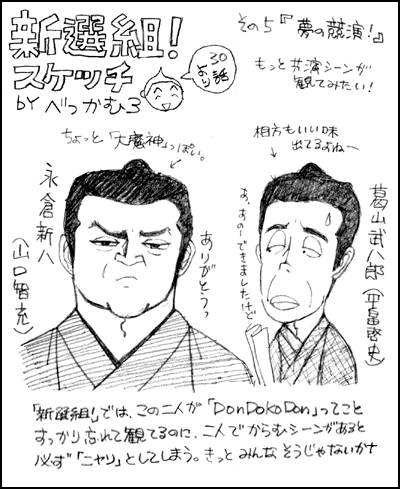 新選組!
スケッチ
BY べっかむ3
30話より
その5『夢の競演!』
もっと共演シーンが
観てみたい!
ちょっと「大魔神」っぽい。
相方もいい味
出てるよねー
永倉新八
(山口智充)
ありがとうっ
あ、あのーできましたけど
葛山武八郎
(平畠啓史)
「新選組!」では、この二人が「DonDokoDon」ってこと
すっかり忘れて観てるのに、二人でからむシーンがあると
必ず「ニヤリ」としてしまう。きっとみんなそうじゃないかナ